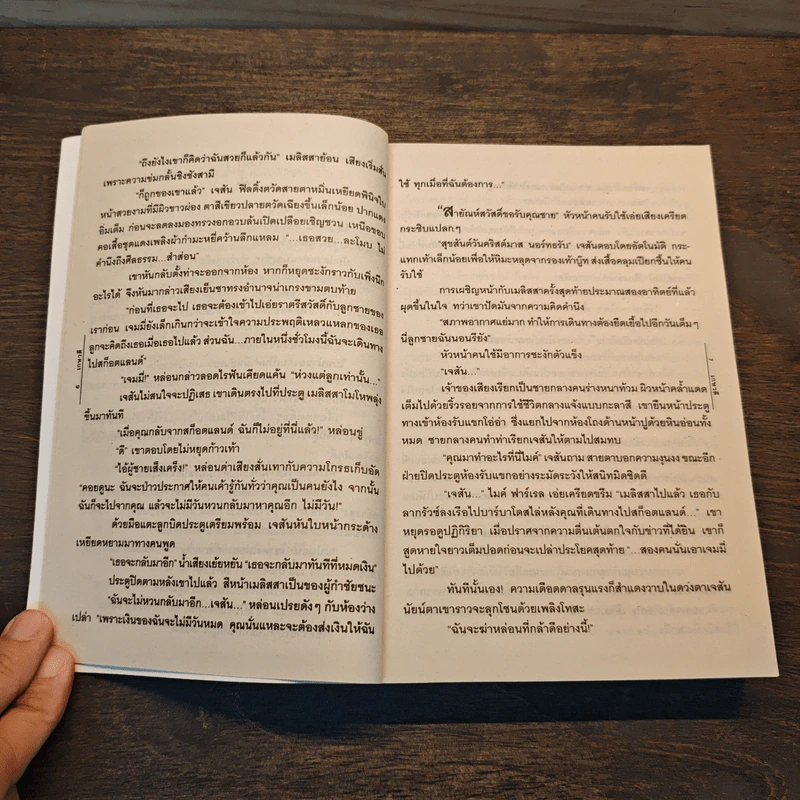 "ถึงยังไงเขาก็คิดว่าฉันสวยก็แล้วกัน" เมลิสสาย้อน เสียงเริ่มสั่น
เพราะความข่มกลั้นชิงชังสามี
"ก็ถูกของเขาแล้ว" เจสัน ฟิลดิ้งตวัดสายตาหมิ่นเหยียดพินิจใบ
หน้าสวยงามที่มีผิวขาวผ่อง ตาสีเขียวปลายตวัดเฉียงขึ้นเล็กน้อย ปากแดง
อิ่มเต็ม ก่อนจะลดลงมองทรวงอกอวบล้นเปิดเปลือยเชิญชวน เหนือขอบ
คอเสื้อชุดแดงเพลิงผ้ากำมะหยี่คว้านลึกแหลม "...เธอสวย...ละโมบ ไม่
คำนึงถึงศีลธรรม...สำส่อน"
เขาหันกลับตั้งท่าจะออกจากห้อง หากก็หยุดชะงักราวกับเพิ่งนึก
อะไรได้ จึงหันมากล่าวเสียงเย็นชาทรงอำนาจน่าเกรงขามตบท้าย
"ก่อนที่เธอจะไป เธอจะต้องเข้าไปเอ่ยราตรีสวัสดิ์กับลูกชายของ
เราก่อน เจมมี่ยังเล็กเกินกว่าจะเข้าใจความประพฤติเหลวแหลกของเธอ
ลูกจะคิดถึงเธอเมื่อเธอไปแล้ว ส่วนฉัน...ภายในหนึ่งชั่วโมงนี้ฉันจะเดินทาง
ไปสก็อตแลนด์"
"เจมมี่!" หล่อนกล่าวลอดไรฟันเคียดแค้น "ห่วงแต่ลูกเท่านั้น..."
เจสันไม่สนใจจะปฏิเสธ เขาเดินตรงไปที่ประตู เมลิสสาโมโหพลุ่ง
ขึ้นมาทันที
"เมื่อคุณกลับจากสก็อตแลนด์ ฉันก็ไม่อยู่ที่นี่แล้ว!" หล่อนขู่
"ดี" เขาตอบโดยไม่หยุดก้าวเท้า
"ไอ้ผู้ชายเส็งเคร็ง!" หล่อนด่าเสียงสั่นเทากับความโกรธเก็บอัด
"คอยดูนะ ฉันจะป่าวประกาศให้คนเค้ารู้กันทั่วว่าคุณเป็นคนยังไง จากนั้น
ฉันก็จะไปจากคุณ แล้วจะไม่มีวันหวนกลับมาหาคุณอีก ไม่มีวัน!"
ด้วยมือแตะลูกบิดประตูเตรียมพร้อม เจสันหันใบหน้ากระด้าง
เหยียดหยามมาทางคนพูด
"เธอจะกลับมาอีก" น้ำเสียงเย้ยหยัน "เธอจะกลับมาทันทีที่หมดเงิน"
ประตูปิดตามหลังเขาไปแล้ว สีหน้าเมลิสสาเป็นของผู้กำชัยชนะ
"ฉันจะไม่หวนกลับมาอีก...เจสัน..." หล่อนเปรยดังๆ กับห้องว่าง
เปล่า "เพราะเงินของฉันจะไม่มีวันหมด คุณนั่นแหละจะต้องส่งเงินให้ฉัน
6 เกษวดี
ใช้ ทุกเมื่อที่ฉันต้องการ..."
"สายัณห์สวัสดิ์ขอรับคุณชาย" หัวหน้าคนรับใช้เอ่ยเสียงเครียด
กระซิบแปลกๆ
"สุขสันต์วันคริสต์มาส นอร์ทธรับ" เจสันตอบโดยอัตโนมัติ กระ-
แทกเท้าเล็กน้อยเพื่อให้หิมะหลุดจากรองเท้าบู๊ท ส่งเสื้อคลุมเปียกชื้นให้คน
รับใช้
การเผชิญหน้ากับเมลิสสาครั้งสุดท้ายประมาณสองอาทิตย์ที่แล้ว
ผุดขึ้นในใจ ทว่าเขาปัดมันจากความคิดคำนึง
"สภาพอากาศแย่มาก ทำให้การเดินทางต้องยืดเยื้อไปอีกวันเต็มๆ
นี่ลูกชายฉันนอนรึยัง"
หัวหน้าคนใช้มีอาการชะงักตัวแข็ง
"เจสัน..."
เจ้าของเสียงเรียกเป็นชายกลางคนร่างหนาท้วม ผิวหน้าคล้ำแดด
เต็มไปด้วยริ้วรอยจากการใช้ชีวิตกลางแจ้งแบบกะลาสี เขายืนหน้าประตู
ทางเข้าห้องรับแขกโอ่อ่า ซึ่งแยกไปจากห้องโถงด้านหน้าปูด้วยหินอ่อนทั้ง
หมด ชายกลางคนทำท่าเรียกเจสันให้ตามไปสมทบ
"คุณมาทำอะไรที่นี่ไมค์" เจสันถาม สายตาบอกความงุนงง ขณะอีก
ฝ่ายปิดประตูห้องรับแขกอย่างระมัดระวังให้สนิทมิดชิดดี
"เจสัน..." ไมค์ ฟาร์เรล เอ่ยเคร่งขรึม "เมลิสสาไปแล้ว เธอกับ
ลากรัวซ์ลงเรือไปบาร์บาโดสไล่หลังคุณที่เดินทางไปสก็อตแลนด์..." เขา
หยุดรอดูปฏิกิริยา เมื่อปราศจากความตื่นเต้นตกใจกับข่าวที่ได้ยิน เขาก็
สูดหายใจยาวเต็มปอดก่อนจะเปล่าประโยคสุดท้าย "...สองคนนั่นเอาเจมมี่
ไปด้วย"
ทันทีนั้นเอง! ความเดือดดาลรุนแรงก็สำแดงวาบในดวงตาเจสัน
นัยน์ตาเขาราวจะลุกโชนด้วยเพลิงโทสะ
"ฉันจะฆ่าหล่อนที่กล้าดีอย่างนี้!"
7 เกษวดี